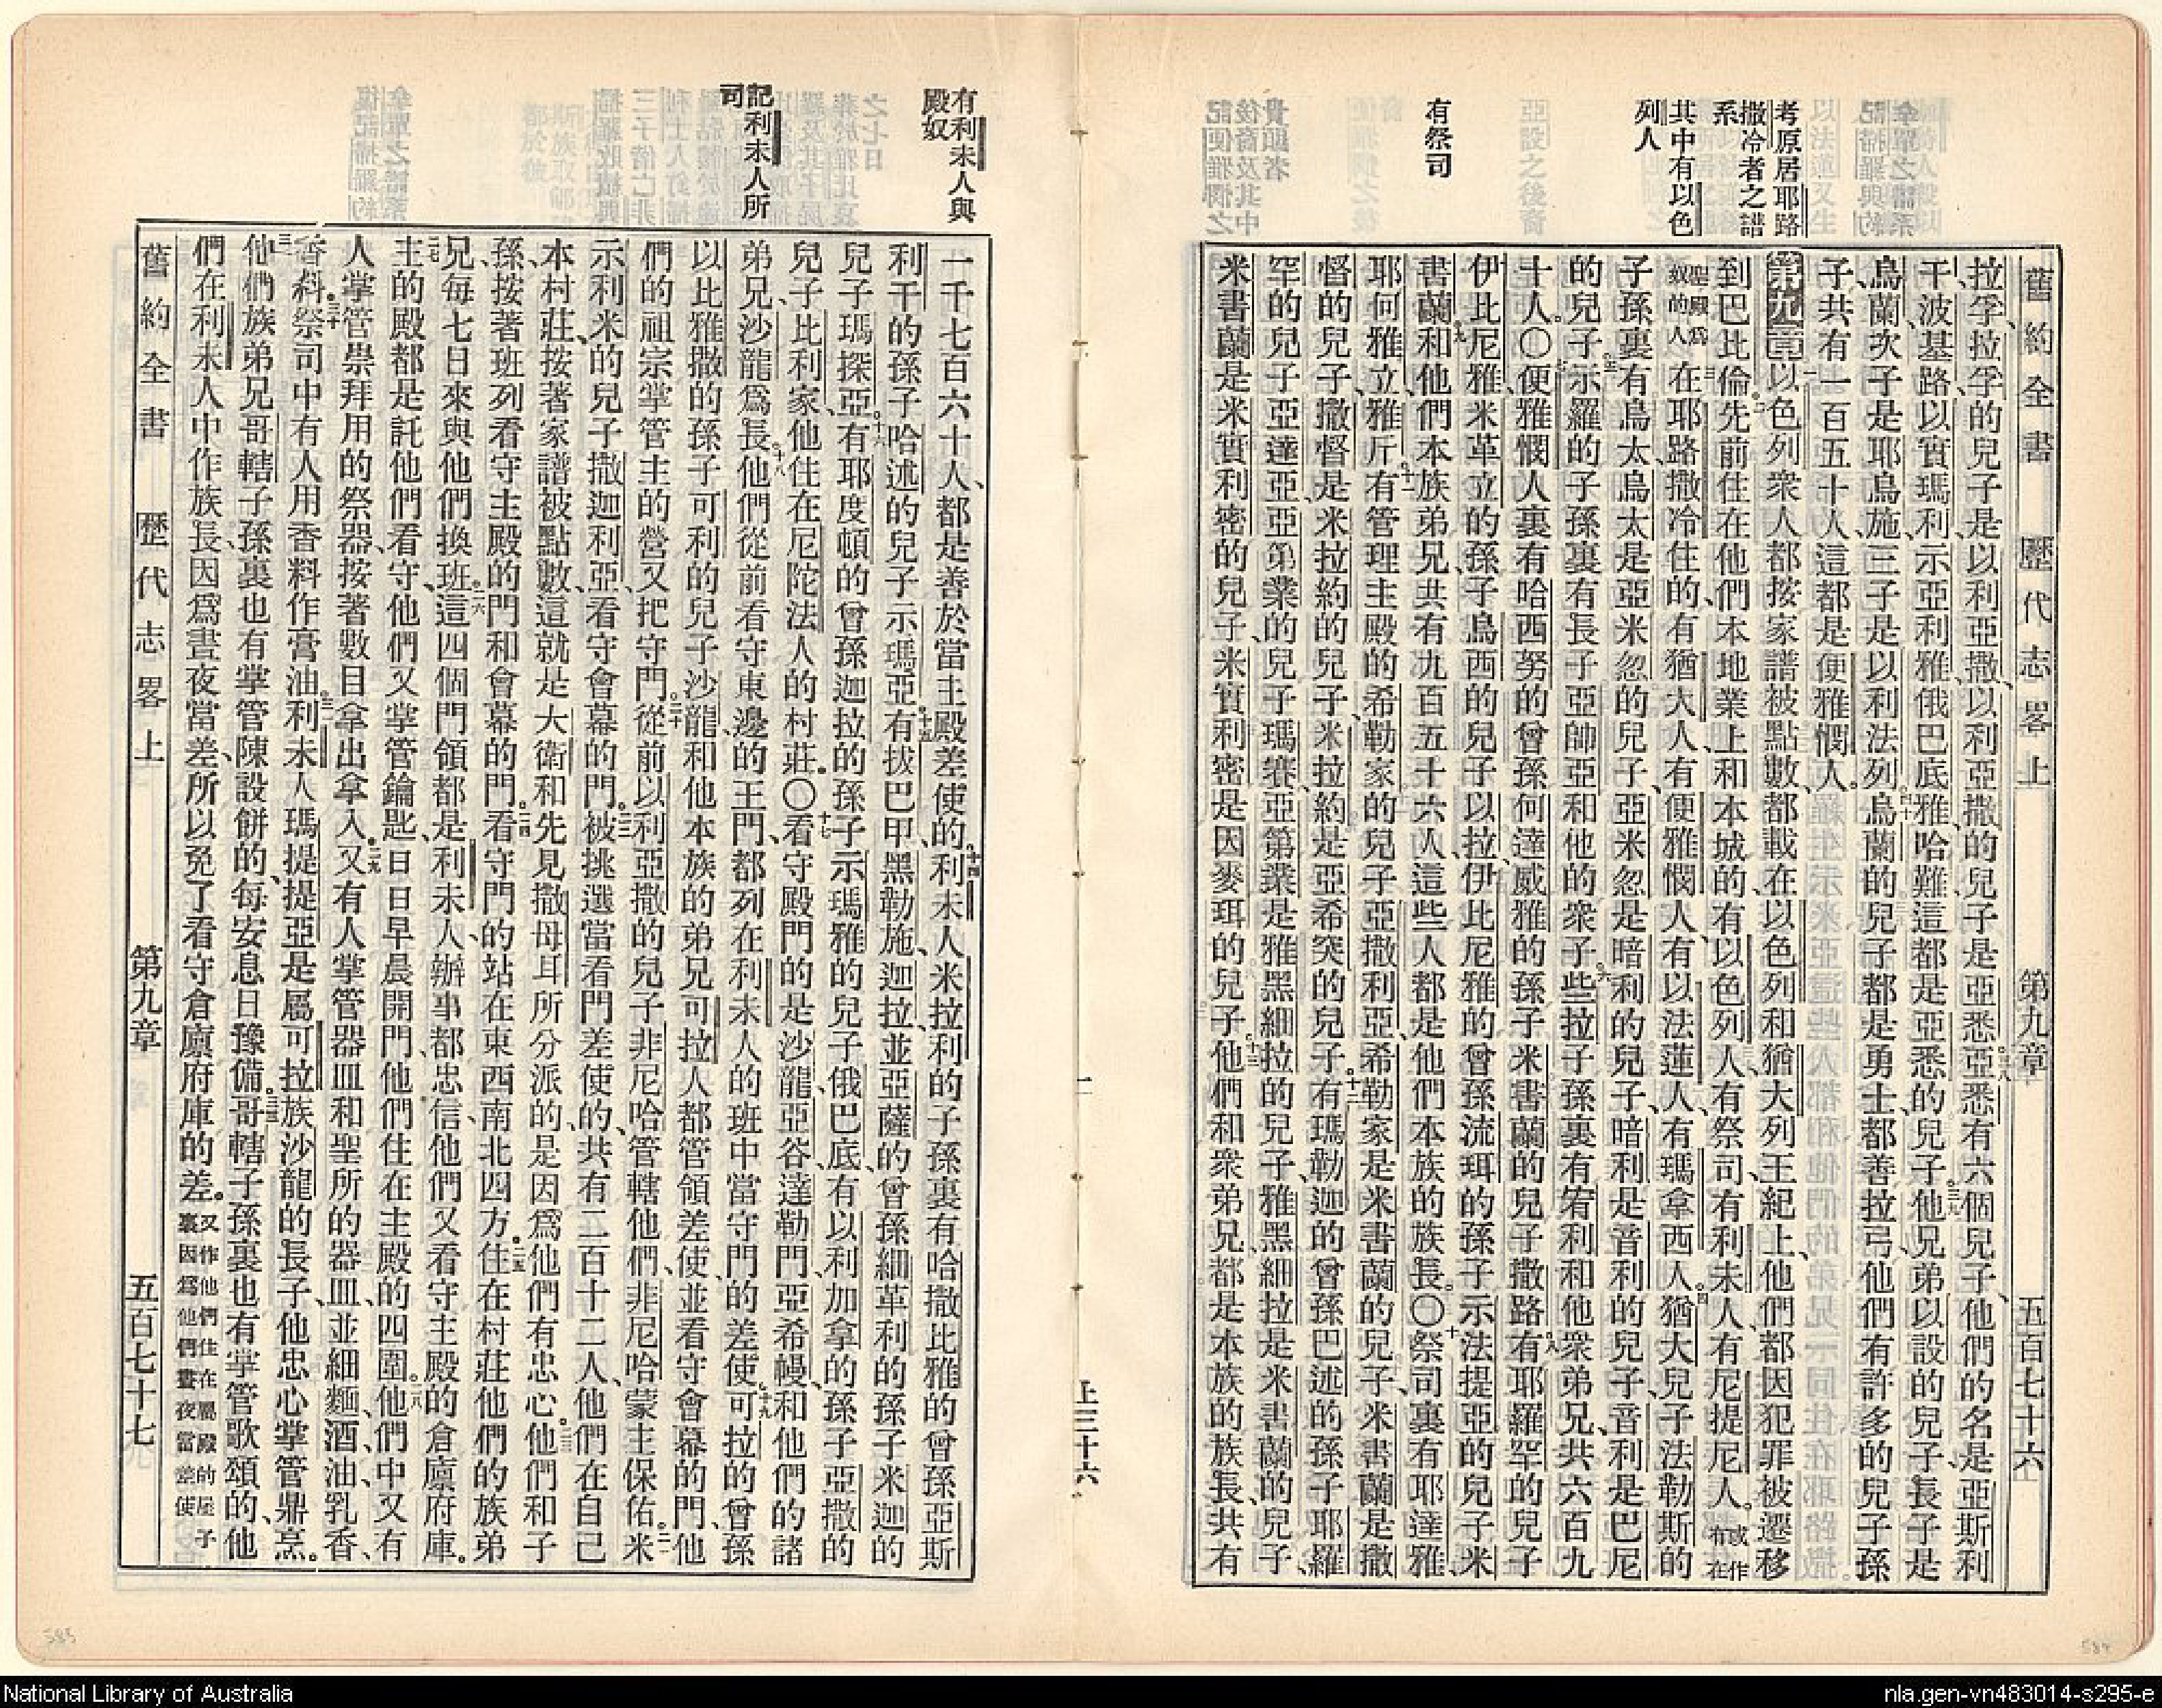 舊約全書 歷代志畧上 第九章 五百七十六
考原居耶路
撒冷者之譜
系
其中有以色
列人
有祭司
拉孚、拉孚的兒子是以利亞撒、以利亞撒的兒子是亞悉、亞悉有六個兒子、他們的名是亞斯利
干、波基路、以實瑪利、示亞利雅、俄巴底雅、哈難、這都是亞悉的兒子。他兄弟以設的兒子、長子是
烏蘭、次子是耶烏施、三子是以利法列。烏蘭的兒子都是勇士、都善拉弓、他們有許多的兒子孫
子、共有一百五十人、這都是便雅憫人。
第九章 以色列衆人都按家譜被點數、都載在以色列和猶大列王紀上、他們都因犯罪被遷移
到巴比倫。先前住在他們本地業上和本城的、有以色列人、有祭司、有利未人、有尼提尼人。或作有在
聖殿爲奴的人在耶路撒冷住的、有猶大人、有便雅憫人、有以法蓮人、有瑪拿西人。猶大兒子法勒斯的
子孫裏有烏太、烏太是亞米忽的兒子、亞米忽是暗利的兒子、暗利是音利的兒子、音利是巴尼
的兒子。示羅的子孫裏有長子亞帥亞、和他的衆子。些拉子孫裏有宥利、和他衆弟兄、共六百九
十人。○便雅憫人裏有哈西努的曾孫、何達威雅的孫子、米書蘭的兒子撒路。有耶羅罕的兒子
伊比尼雅、米革立的孫子、烏西的兒子以拉、伊比尼雅的曾孫、流珥的孫子、示法提亞的兒子米
書蘭。和他們本族弟兄、共有九百五十六人、這些人都是他們本族的族長。○祭司裏有耶達雅、
耶何雅立、雅斤。有管理主殿的希勒家的兒子亞撒利亞、希勒家是米書蘭的兒子、米書蘭是撒
督的兒子、撒督是米拉約的兒子、米拉約是亞希突的兒子。有瑪勒迦的曾孫、巴述的孫子、耶羅
罕的兒子亞達亞、亞第業的兒子瑪賽、亞第業是雅黑細拉的兒子、雅黑細拉是米書蘭的兒子、
米書蘭是米實利密的兒子、米實利密是因麥珥的兒子。他們和衆弟兄、都是本族的族長、共有
上三十六
有利未人與
殿奴
記利未人所
司
一千七百六十人、都是善於當主殿差使的。利未人、米拉利的子孫裏有哈撒比雅的曾孫、亞斯
利干的孫子、哈述的兒子示瑪亞。有拔巴甲、黑勒施、迦拉、並亞薩的曾孫、細革利的孫子、米迦的
兒子瑪探亞。有耶度頓的曾孫、迦拉的孫子、示瑪雅的兒子俄巴底、有以利加拿的孫子、亞撒的
兒子比利家、他住在尼陀法人的村莊。○看守殿門的是沙龍、亞谷、達勒門、亞希幔、和他們的諸
弟兄、沙龍爲長。他們從前看守東邊的王門、都列在利未人的班中、當守門的差使。可拉的曾孫、
以比雅撒的孫子、可利的兒子沙龍、和他本族的弟兄可拉人、都管領差使、並看守會幕的門、他
們的祖宗掌管主的營、又把守門。從前以利亞撒的兒子非尼哈管轄他們、非尼哈蒙主保佑。米
示利米的兒子撒迦利亞、看守會幕的門。被挑選當看門差使的、共有二百十二人、他們在自己
本村莊、按著家譜被點數、這就是大衛和先見撒母耳所分派的、是因爲他們有忠心。他們和子
孫、按著班列看守主殿的門和會幕的門。看守門的站在東西南北四方。住在村莊他們的族弟
兄、每七日來與他們換班。這四個門領都是利未人、辦事都忠信、他們又看守主殿的倉廩府庫。
主的殿都是託他們看守、他們又掌管鑰匙、日日早晨開門、他們住在主殿的四圍。他們中又有
人掌管祟拜用的祭器、按著數目拿出拿入。又有人掌管器皿和聖所的器皿、並細麵、酒、油、乳香、
香料。祭司中有人用香料作膏油。利未人瑪提提亞是屬可拉族沙龍的長子、他忠心掌管鼎烹。
他們族弟兄哥轄子孫裏也有掌管陳設餅的、每安息日豫備。哥轄子孫裏也有掌管歌頌的、他
們在利未人中作族長、因爲晝夜當差、所以免了看守倉廩府庫的差。又作他們住在屬殿的屋子裏因爲他們晝夜當差使
舊約全書 歷代志畧上 第九章 五百七十七
583
584
National Library of Australia
nla.gen-vn483014-s295-e